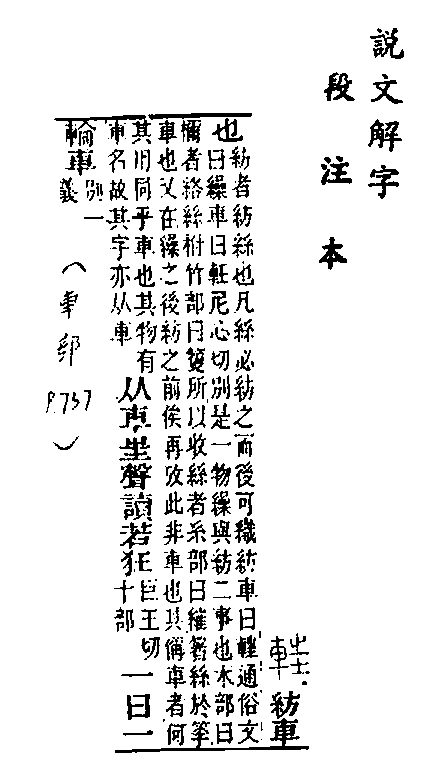 説文解字
段注本
軖紡車
也
紡者紡絲也凡絲必紡之而後可織紡車曰軖通俗文
曰繰車曰尼心切別是一物繰與紡二事也木部曰
檷者絡絲柎竹部曰篗所以收絲者糸部曰繀箸絲於筟
車也又在繰之後紡之前俟再攷此非車也其偁車者何
其用同乎車也其物有
車名故其字亦从車
从車㞷聲讀若狂
巨王切
十部
一曰一
輪車
別一
義
(車部
P.737
)